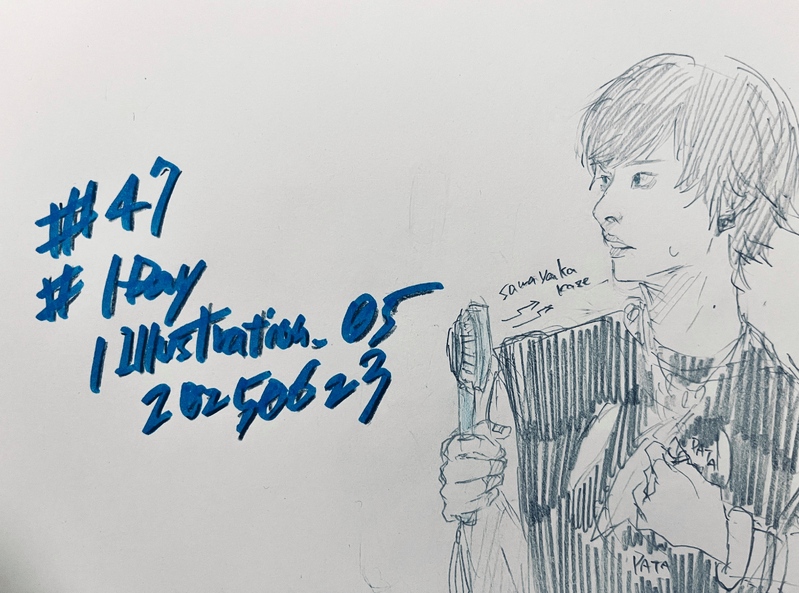 #47
#1Day
1 Illustration_05
20250623
sawayaka
kaze
PATA
PATA
YATA